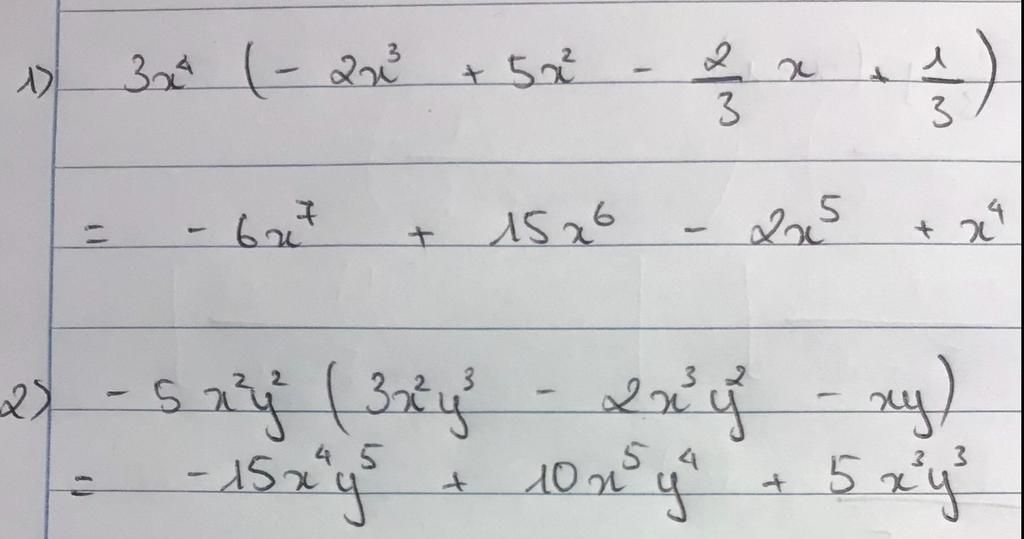 1) 3x⁴ (- 2x³ + 5x² - 2/3 x + 1/3)
= - 6x⁷ + 15x⁶ - 2x⁵ + x⁴
2) - 5x²y² (3x²y³ - 2x³y² - xy)
= -15x⁴y⁵ + 10x⁵y⁴ + 5x³y³